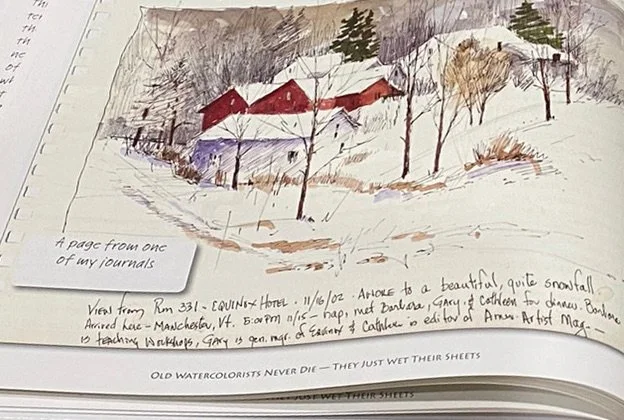 thi
tei
th
th
ne
of
wi
A page from one
of my journals
View from Rm 331 - EQUINOX HOTEL · 11/16/02 · AWOKE to a beautiful, quite snowfall.
Arrived here - MANCHESTER, Vt. 5:00 PM 11/15 - nap, met Barbara, GARY, & Cathleen for dinner. Barbara
is teaching workshops, GARY is gen. mgr. of Equinox & Cathleen is editor of Amer. Artist Mag.
OLD WATERCOLORISTS NEVER DIE — THEY JUST WET THEIR SHEETS
THEY JUST WET THEIR SHEETS